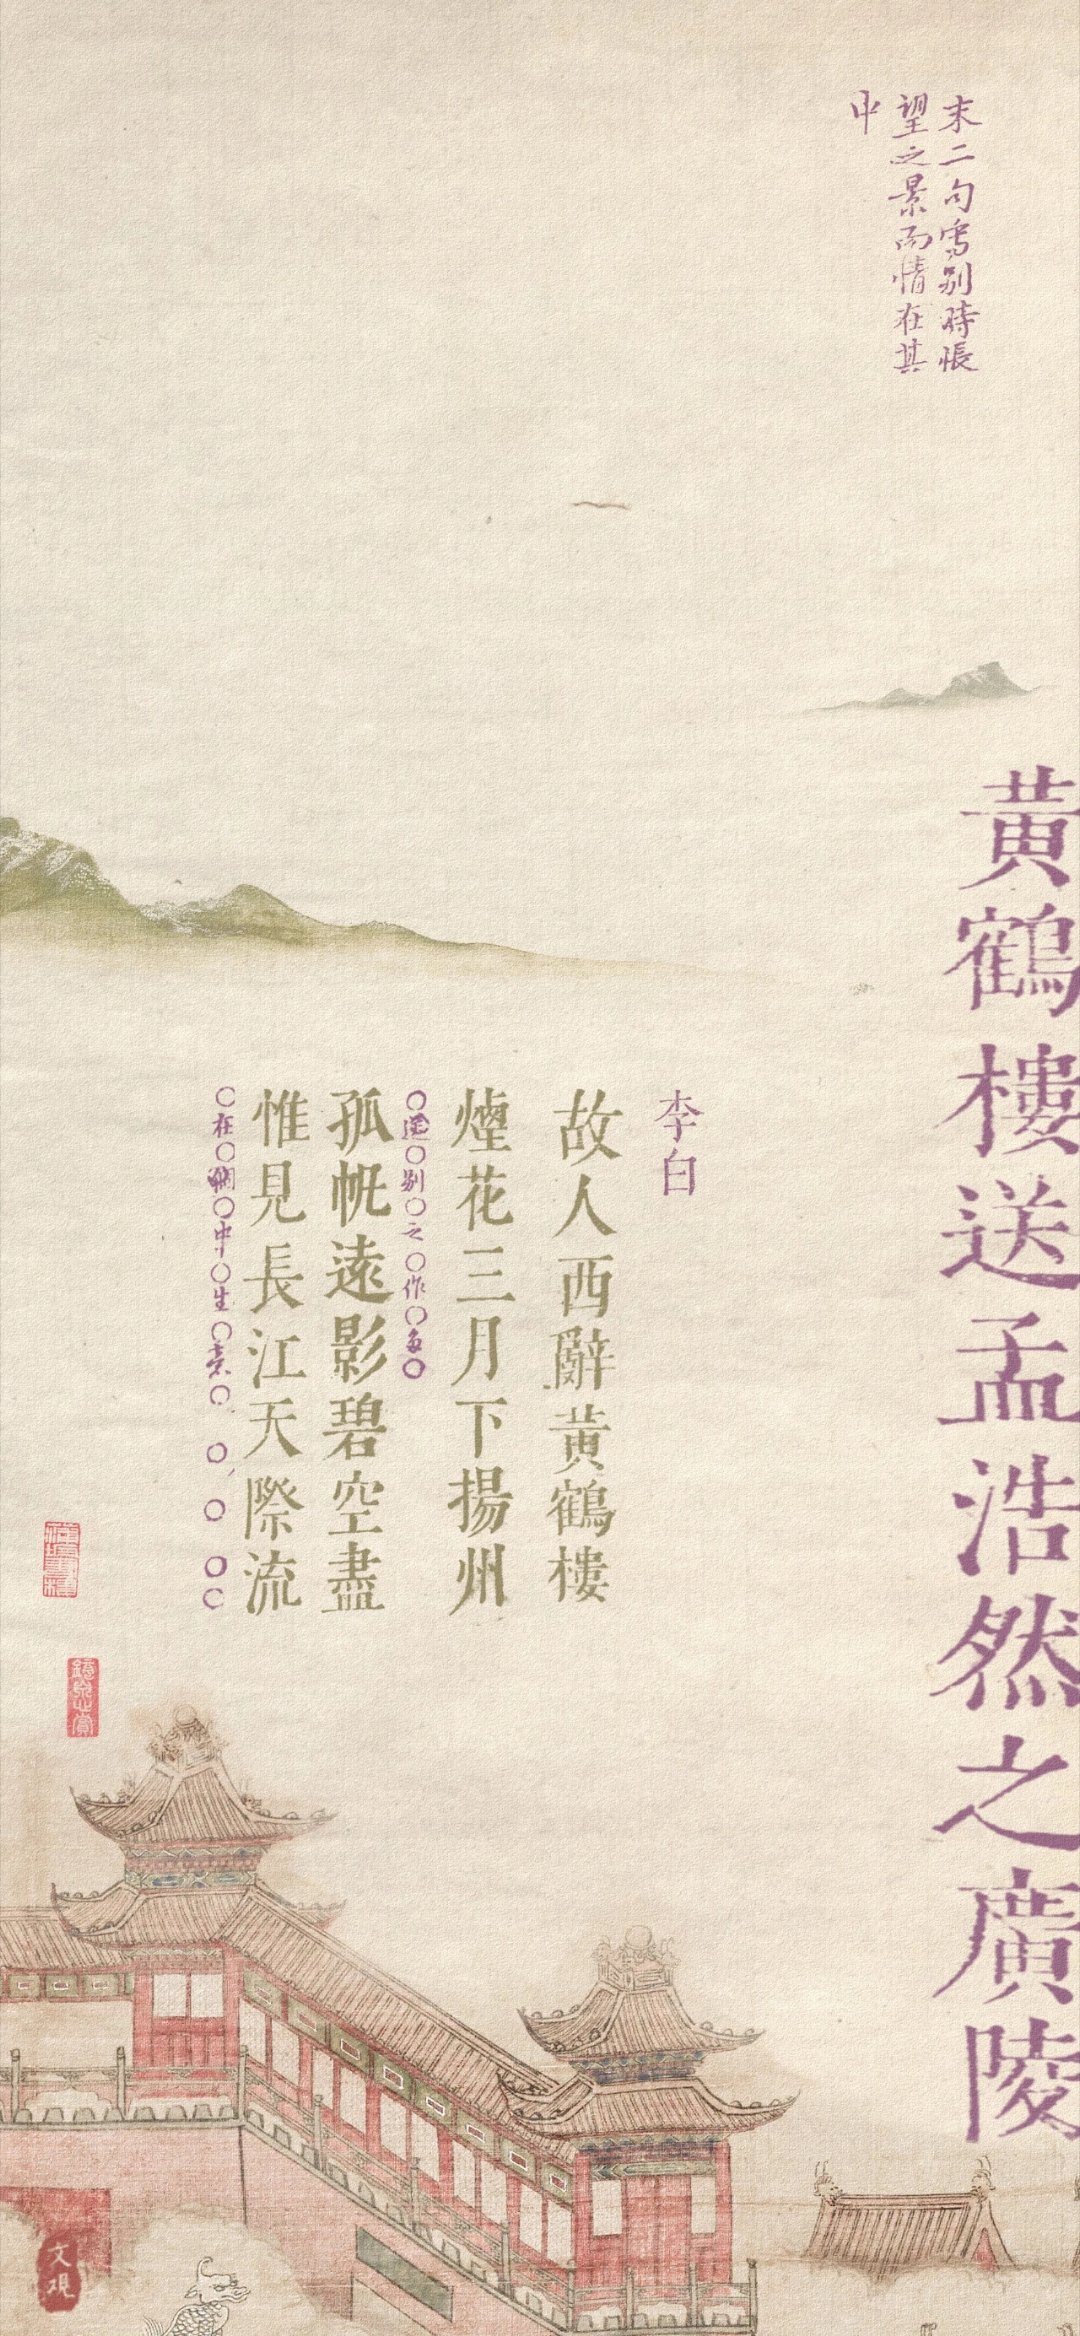 末二句寫別時悵
望之景而情在其
中
黃鶴樓送孟浩然之廣陵
李白
故人西辭黃鶴樓
煙花三月下揚州
送別之作多
孤帆遠影碧空盡
惟見長江天際流
在中生
文観